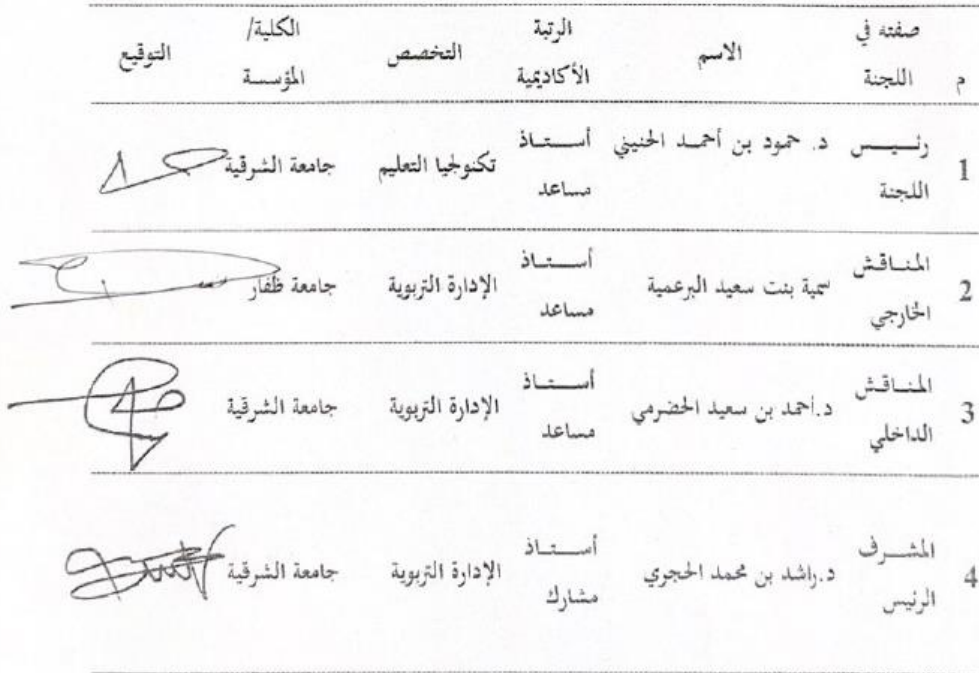 م صفته في اللجنة الاسم الرتبة الأكاديمية التخصص الكلية/ المؤسسة التوقيع
1 رئيس اللجنة د. حمود بن أحمد الحنيني أستاذ مساعد تكنولجيا التعليم جامعة الشرقية
2 المناقش الخارجي سمية بنت سعيد البرعمية أستاذ مساعد الإدارة التربوية جامعة ظفار
3 المناقش الداخلي د.أحمد بن سعيد الحضرمي أستاذ مساعد الإدارة التربوية جامعة الشرقية
4 المشرف الرئيس د.راشد بن محمد الحجري أستاذ مشارك الإدارة التربوية جامعة الشرقية